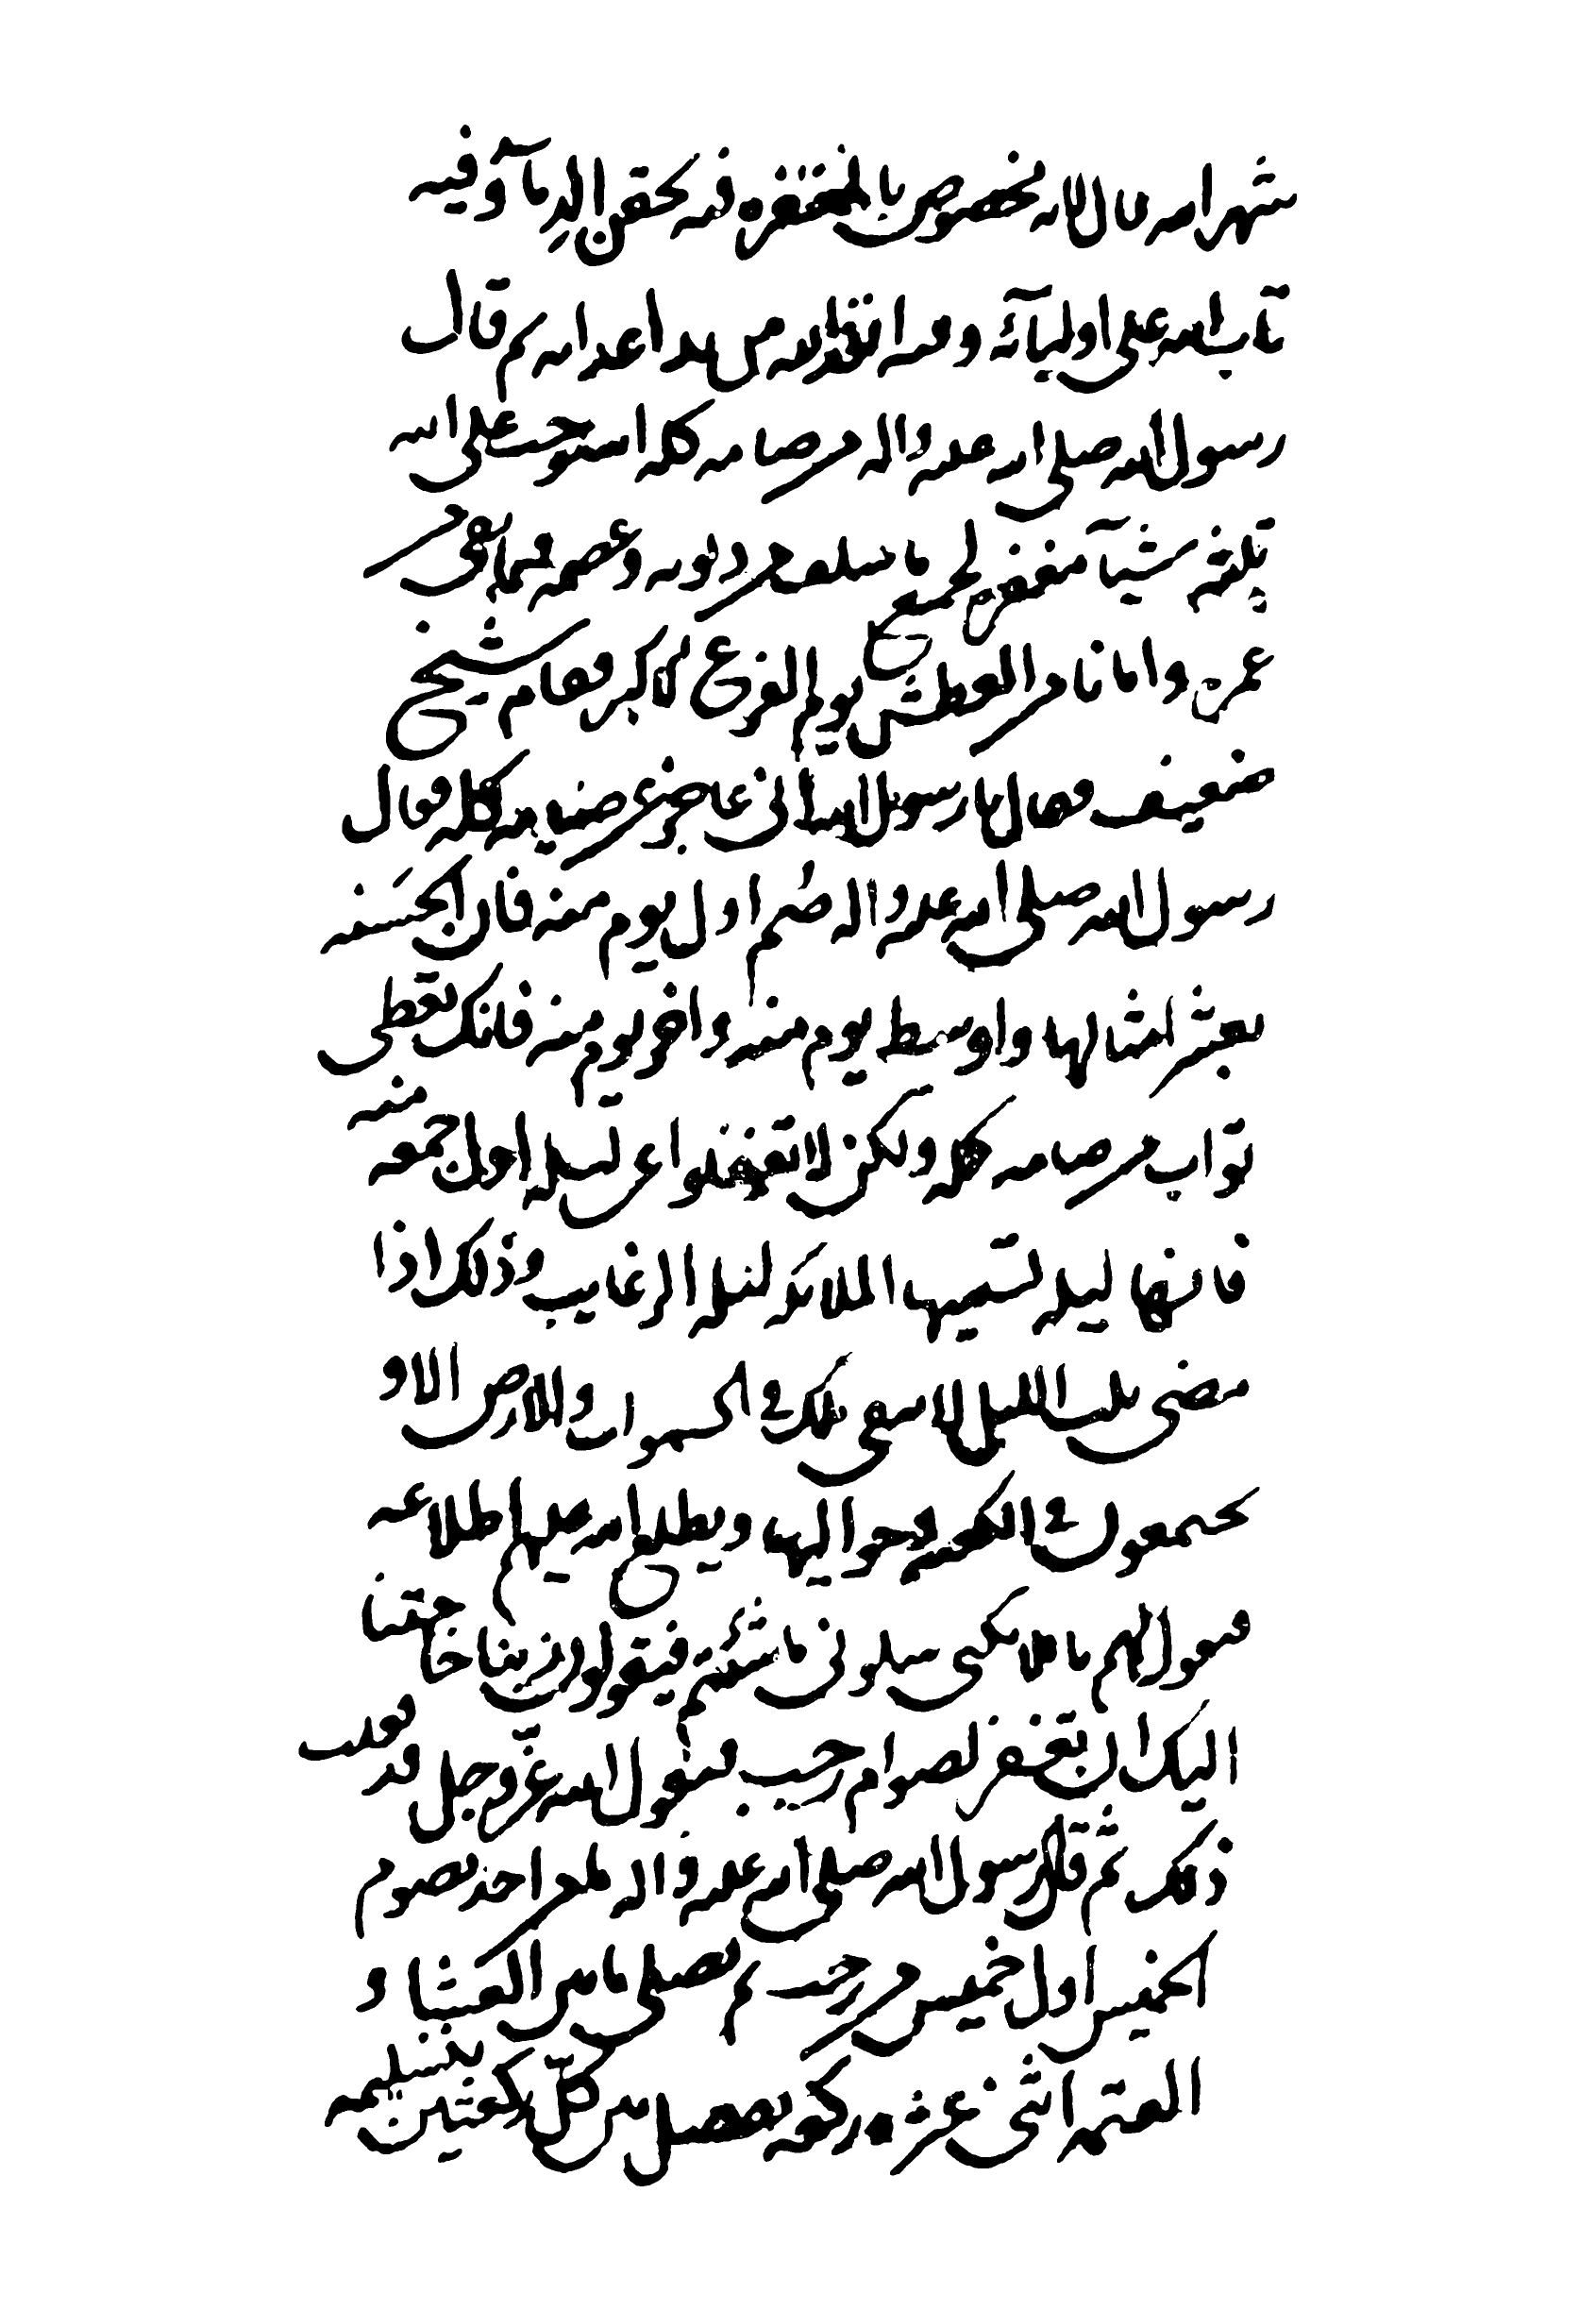 شهر الله قال لانه مخصوص بالمغفرة فيه تحقن الدماء وفيه
تاب الله على اوليائه وفيه انقذهم من يد اعدائه ثم قال
رسول الله صلى الله عليه واله من صامه كله استوجب على الله
ثلثة اشياء مغفرة لجميع ما سلف من ذنوبه وعصمة فيما بقي من
عمره وامانا من العطش يوم الفزع الاكبر فقام شيخ
ضعيف فقال يا رسول الله اني عاجز عن صيامه كله فقال
رسول الله صلى الله عليه واله صُم اول يوم منه فان الحسنة
بعشر امثالها واوسط يوم منه واخر يوم منه فانك تعطى
ثواب من صامه كله ولكن لا تغفلوا عن ليلة اول جمعة منه
فانها ليلة تسميها الملائكة ليلة الرغايب وذلك اذا
مضى ثلث الليل لا يبقى ملك في السموات والارض الا و
يجتمعون في الكعبة وحواليها ويطلع الله عليهم اطلاعة
فيقول لهم يا ملائكتي سلوني ما شئتم فيقولون ربنا حاجتنا
اليك ان تغفر لصوام رجب فيقول الله عزّ وجل قد فعلت
ذلك ثم قال رسول الله صلى الله عليه واله ما من احد يصوم
الخميس اول خميس من رجب ثم يصلي ما بين العشا و
العتمة اثنى عشرة ركعة يفصل بين كلّ ركعتين بتسليمة